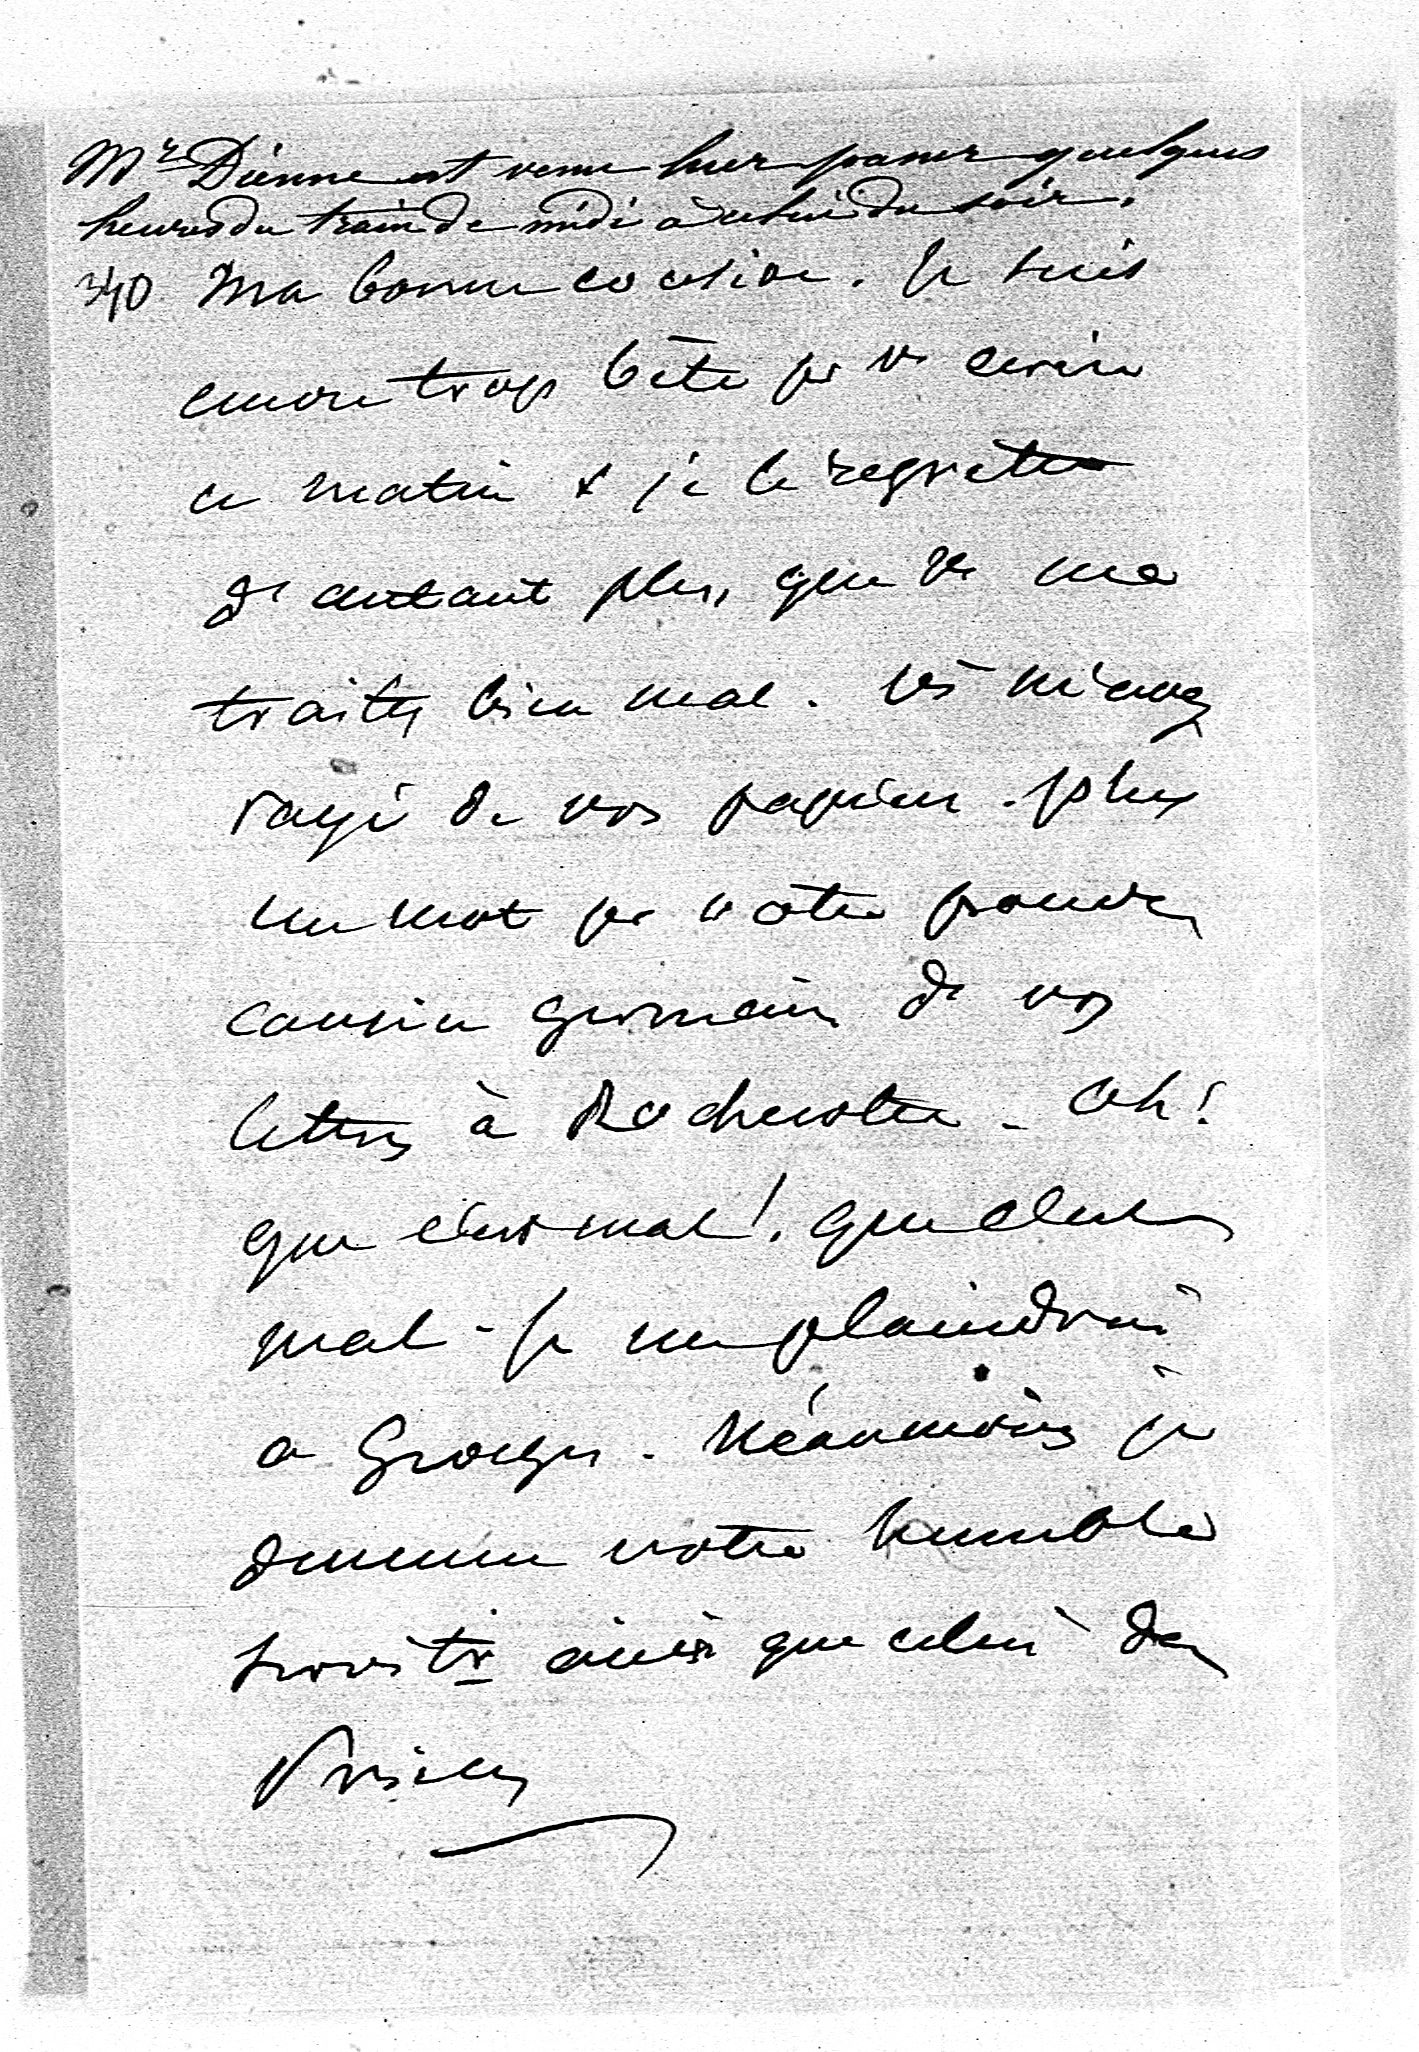 Mr Dienne est venu hier passer quelques
heures du train de midi à celui du soir.
340 Ma bonne cousine. Je suis
encore trop bête pr vs écrire
ce matin & je le regrette
d'autant plus, que vs me
traitez bien mal. Vs m'avez
rayé de vos papiers. plus
un mot pr votre pauvre
cousin germain de vos
lettres à Rochecotte. Oh!
que c'est mal! que c'est
mal. Je me plaindrai
a Georges. Néanmoins je
demeure votre humble
servitr ainsi que celui de